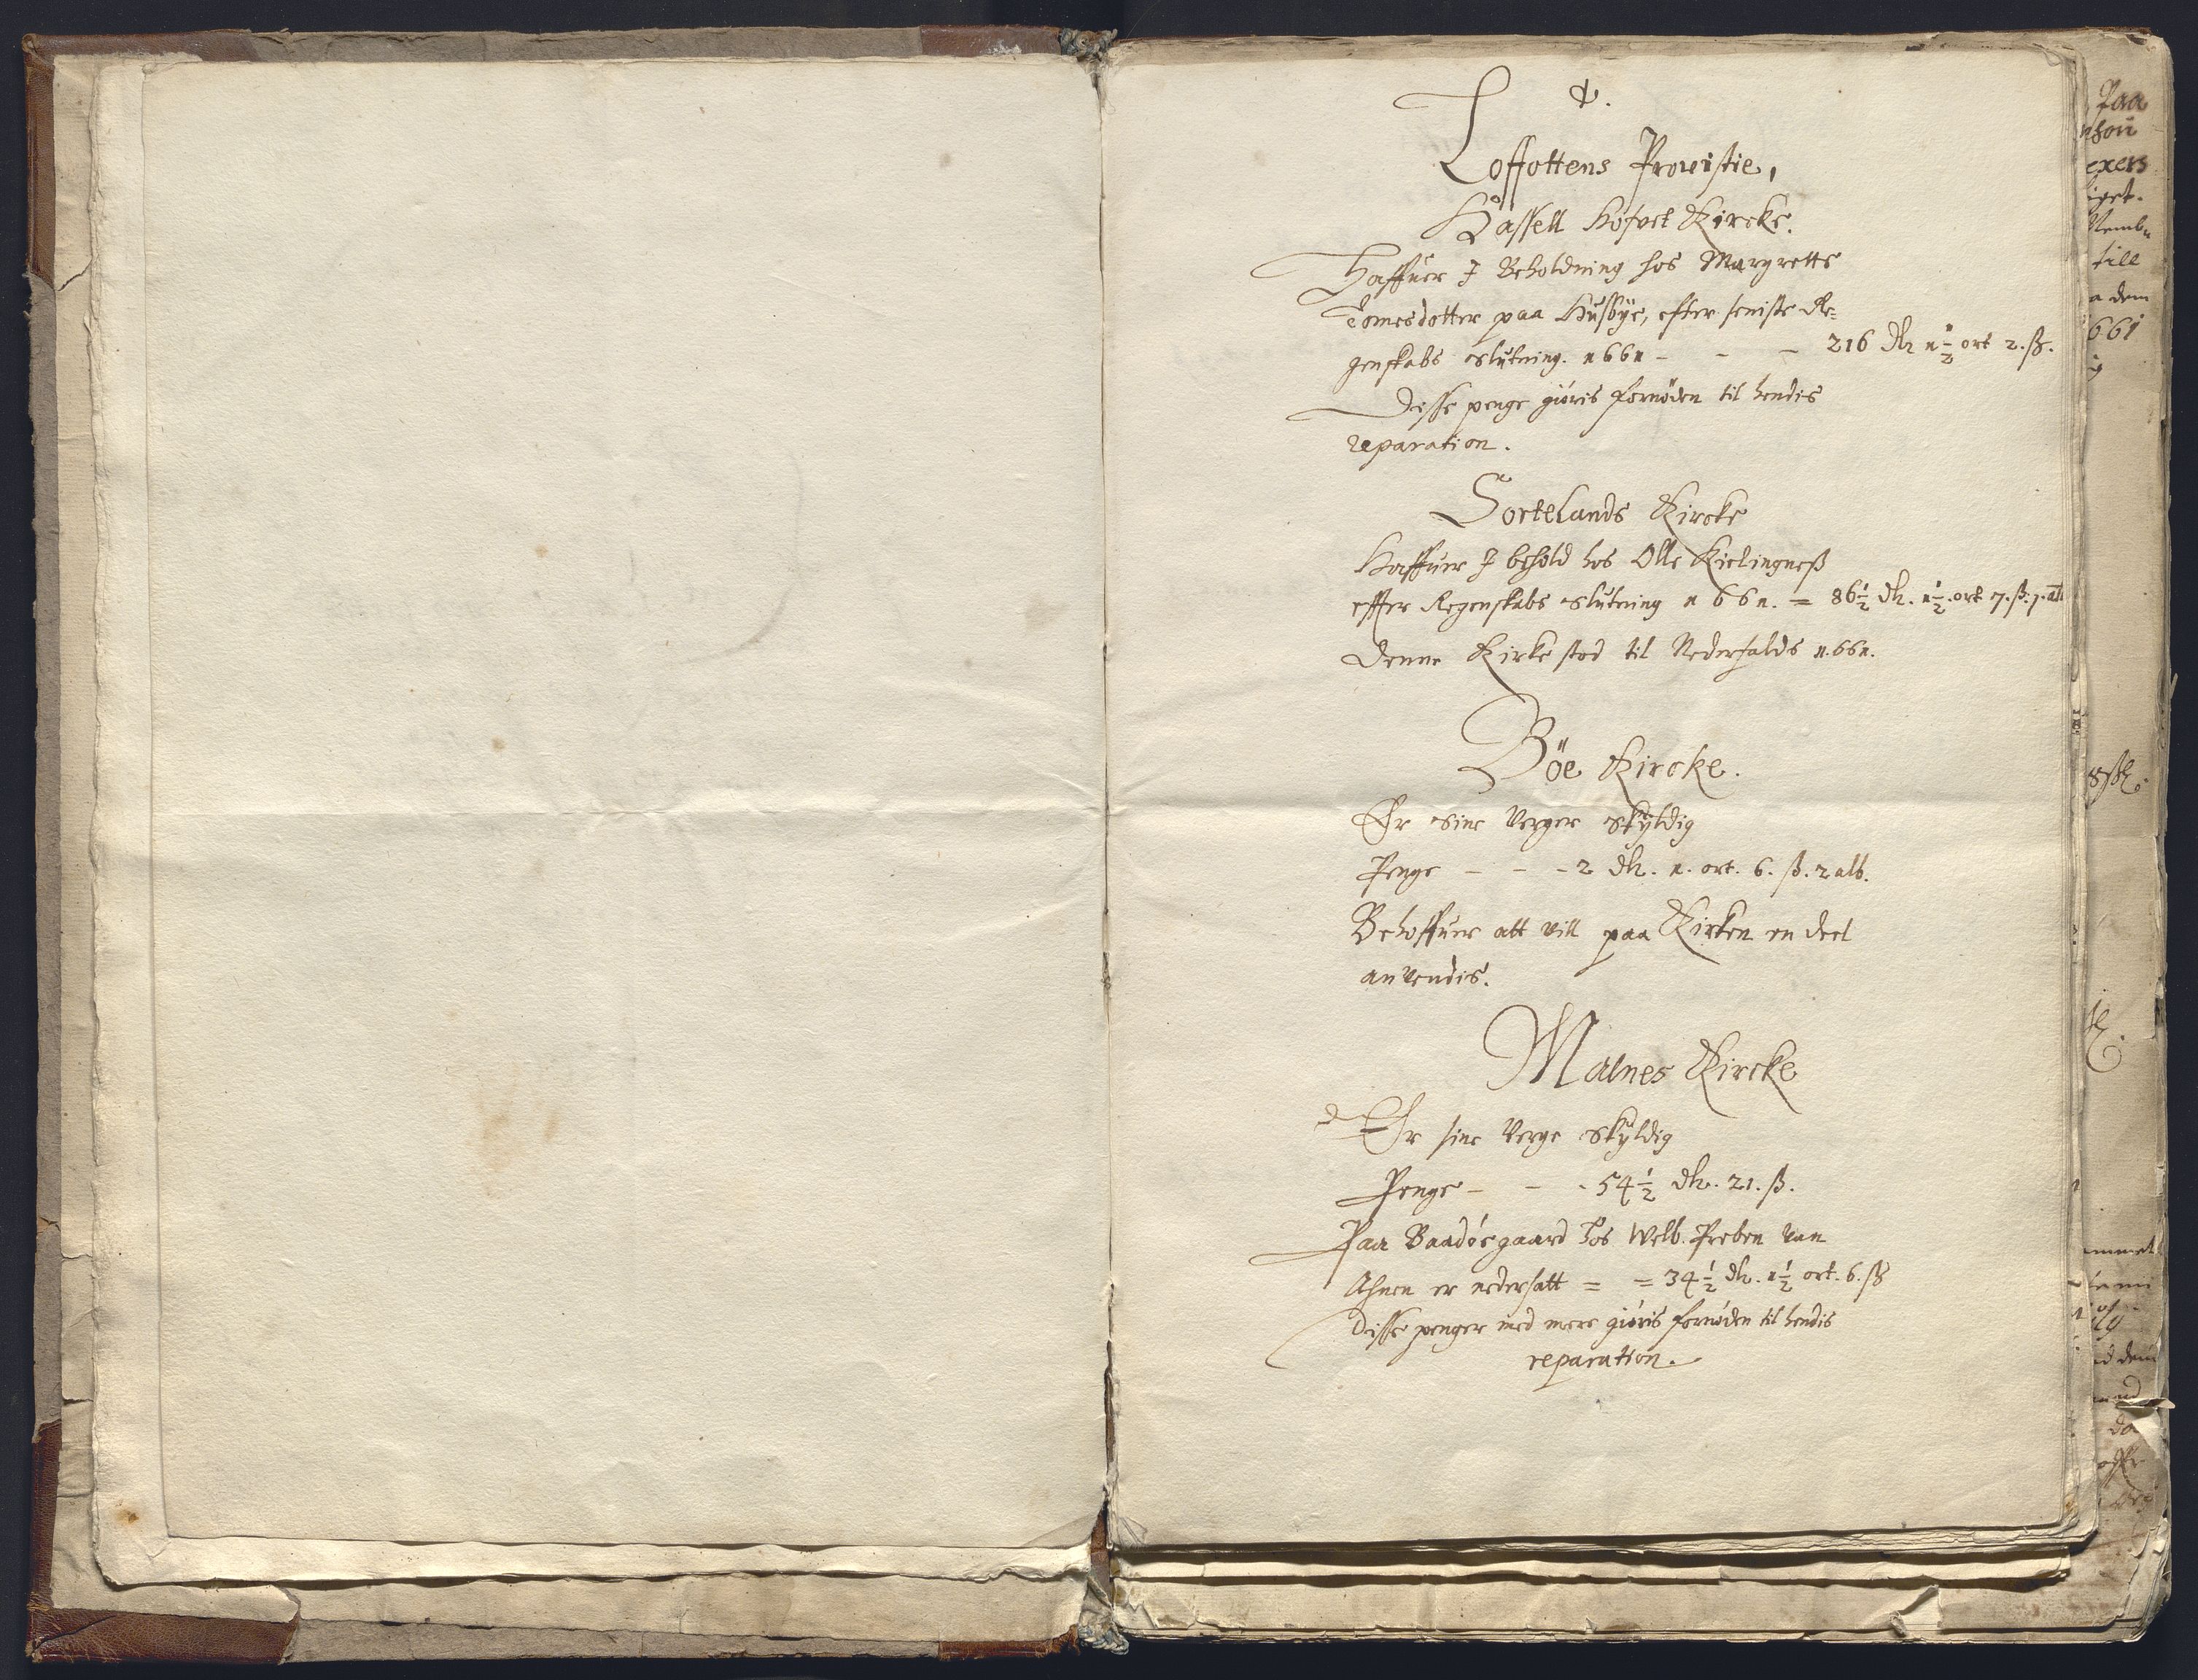 Loffottens Prowistie,
Hassell Høfvet Kircke.
Haffuer I Beholdning hos Margrette
Tomesdotter paa Husbÿe, efter seniste Re=
genskabs slutning. 1661 - - - 216 dlr 1½ ort 2. ß.
Disse penge giøris fornøden til hendis
reparation.
Sortelands Kircke
Haffuer I behold hos Olle Kielingneß
effter Regenskabs slutning 1661. = 86½ dlr. 1½ ort 7. ß. 1. alb
Denne Kirke stod til Nederfalds 1661.
Böe Kircke.
Er sine Verger skyldig
Penge - - - 2 dlr. 1. ort. 6. ß. 2 alb.
Behoffuer att vill paa Kirken en deel
anvendis.
Malnes Kircke
Er sine Verge skyldig
Penge - - - 54½ dlr. 21. ß.
Paa Baadøegaard hos Welb. Preben van
Ahnen er nedersatt = = 34½ dlr. 1½ ort. 6. ß
Disse penger med mere giøris fornøden til hendis
reparation.
Paa
exers
iget.
till
a dem
1661